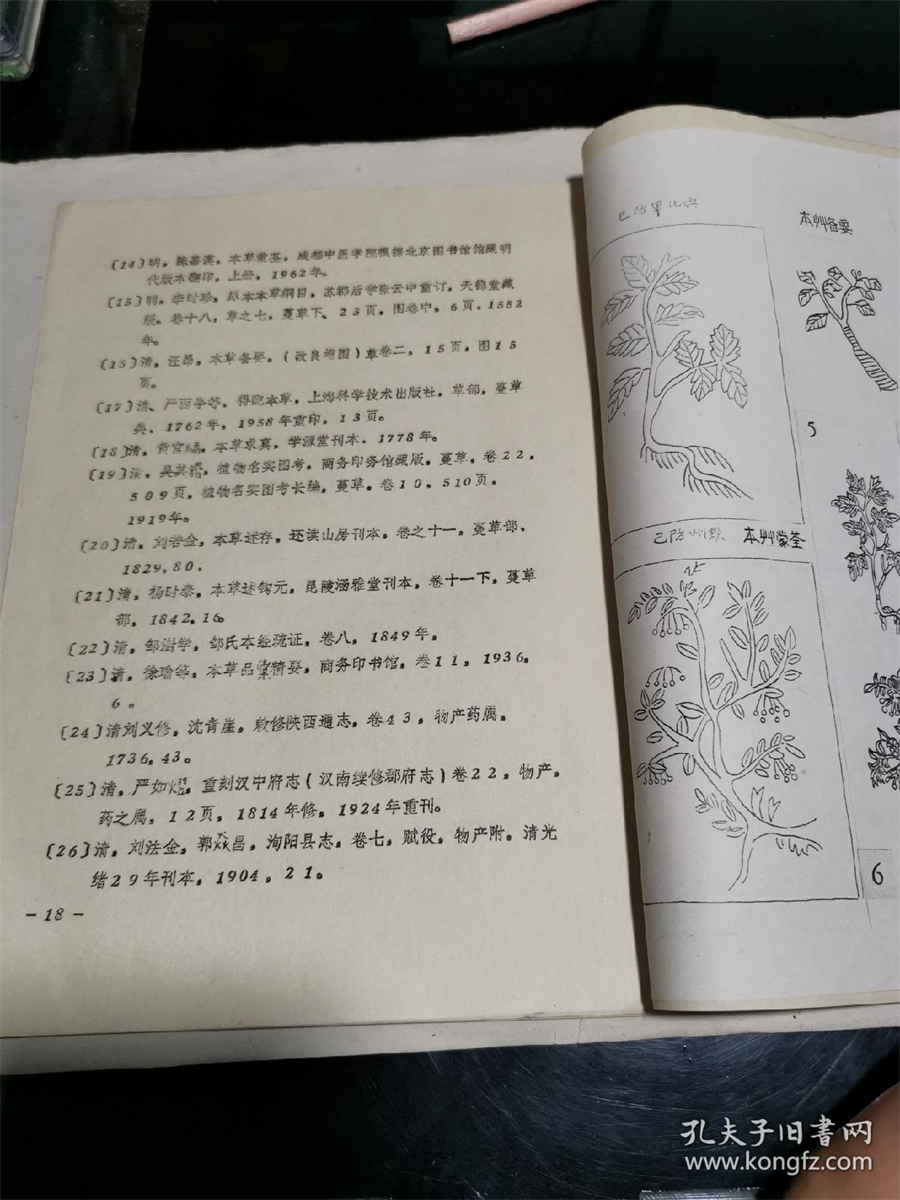 〔14〕明，陈嘉谟，本草蒙荃，成都中医学院根据北京图书馆馆藏明
代版本翻印，上册，1962年。
〔15〕明，李时珍，原本本草纲目，苏郡后学张云中重订，天德堂藏
版，卷十八，草之七，蔓草下，23页，图卷中，6页，1582
年。
〔15〕清，汪昂，本草备要，（改良增图）草卷二，15页，图15
页。
〔17〕清、严西亭等，得配本草，上海科学技术出版社，草部，蔓草
类，1762年，1958年重印，13页。
〔18〕清，黄宫绣，本草求真，学源堂刊本，1778年。
〔19〕清，吴其濬，植物名实图考，商务印务馆藏版，蔓草，卷22，
509页，植物名实图考长编，蔓草，卷10，510页，
1919年。
〔20〕清，刘若金，本草述存，还读山房刊本，卷之十一，蔓草部，
1829，80。
〔21〕清，杨时泰，本草述钩元，毘陵涵雅堂刊本，卷十一下，蔓草
部，1842，16。
〔22〕清，邹澍学，邹氏本经疏证，卷八，1849年。
〔23〕清，徐瑜等，本草品彙精要，商务印书馆，卷11，1936，
6。
〔24〕清刘义修，沈青崖，敕修陕西通志，卷43，物产药属，
1736，43。
〔25〕清，严如熤，重刻汉中府志（汉南续修郡府志）卷22，物产，
药之属，12页，1814年修，1924年重刊。
〔26〕清，刘法金，郭焱昌，洵阳县志，卷七，赋役，物产附，清光
绪29年刊本，1904，21。
－18－
本艸备要
5
本艸蒙荃
6
孔夫子旧書网
www.kongfz.com